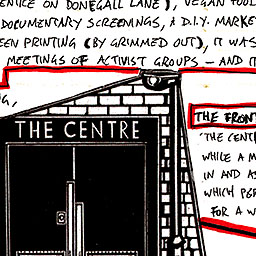 ENTICE ON DONEGALL LANE), VEGAN FOOD
DOCUMENTARY SCREENINGS, A D.I.Y. MARKE
EEN PRINTING (BY GRIMMED OUT), IT WAS
MEETINGS OF ACTIVIST GROUPS – AND IT
G,
THE CENTRE
THE FRONT
"THE CENTR
WHILE A M
IN AND AS
WHICH PER
FOR A W